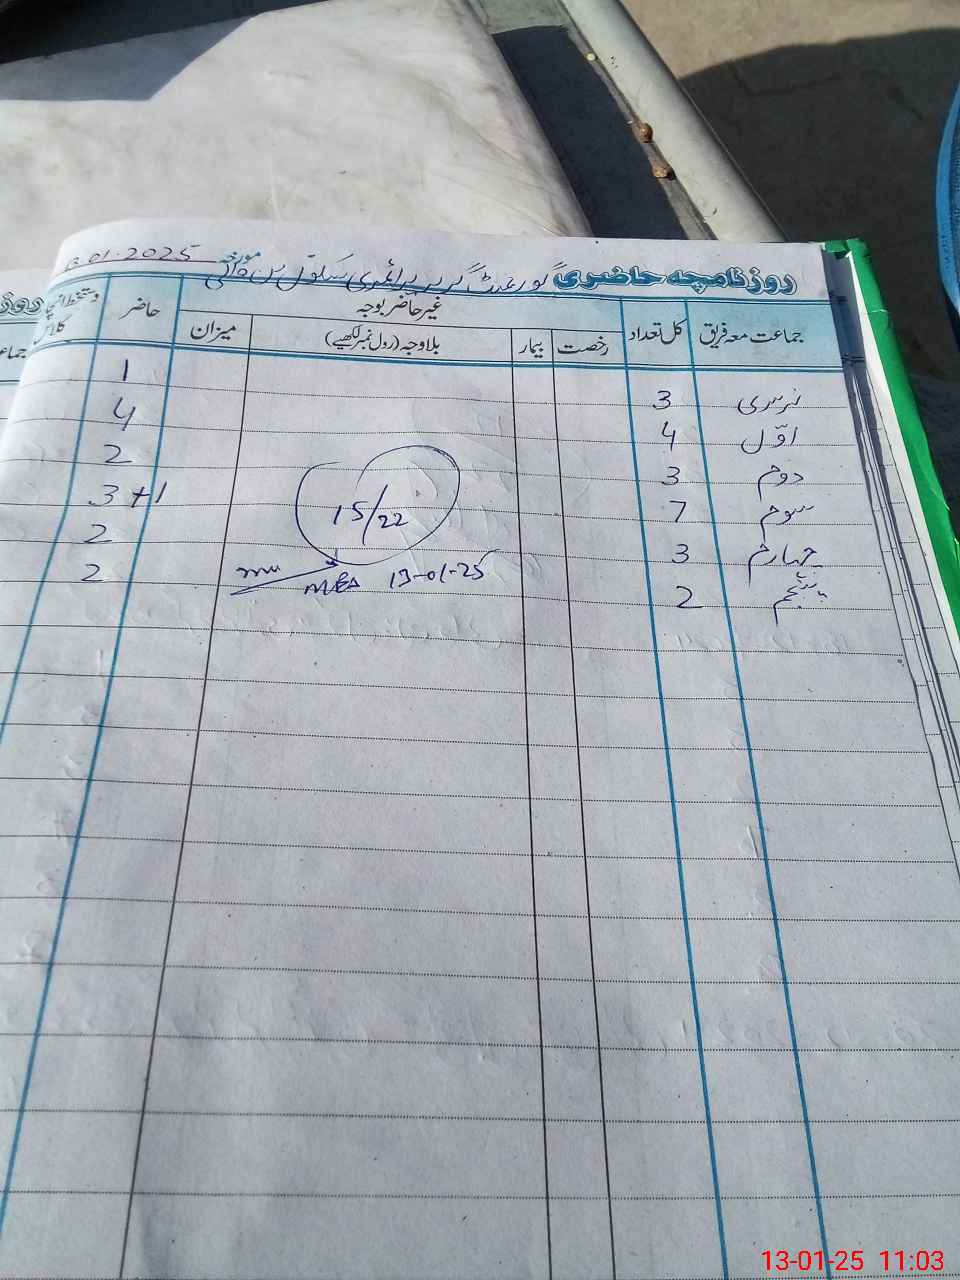 روزنامچہ حاضری گورنمنٹ گرلز پرائمری سکول بن والی مورخہ 13.01.2025
جماعت معہ فریق کل تعداد غیر حاضر بوجہ حاضر دستخط انچارج کلاس
رخصت بیمار بلاوجہ (رول نمبر لکھیے) میزان
نرسری 3 1
اوّل 4 4
دوم 3 2
سوم 7 3+1
چہارم 3 2
پنجم 2 2
15/22
MEA 13-01-25
روز
جما
13-01-25 11:03